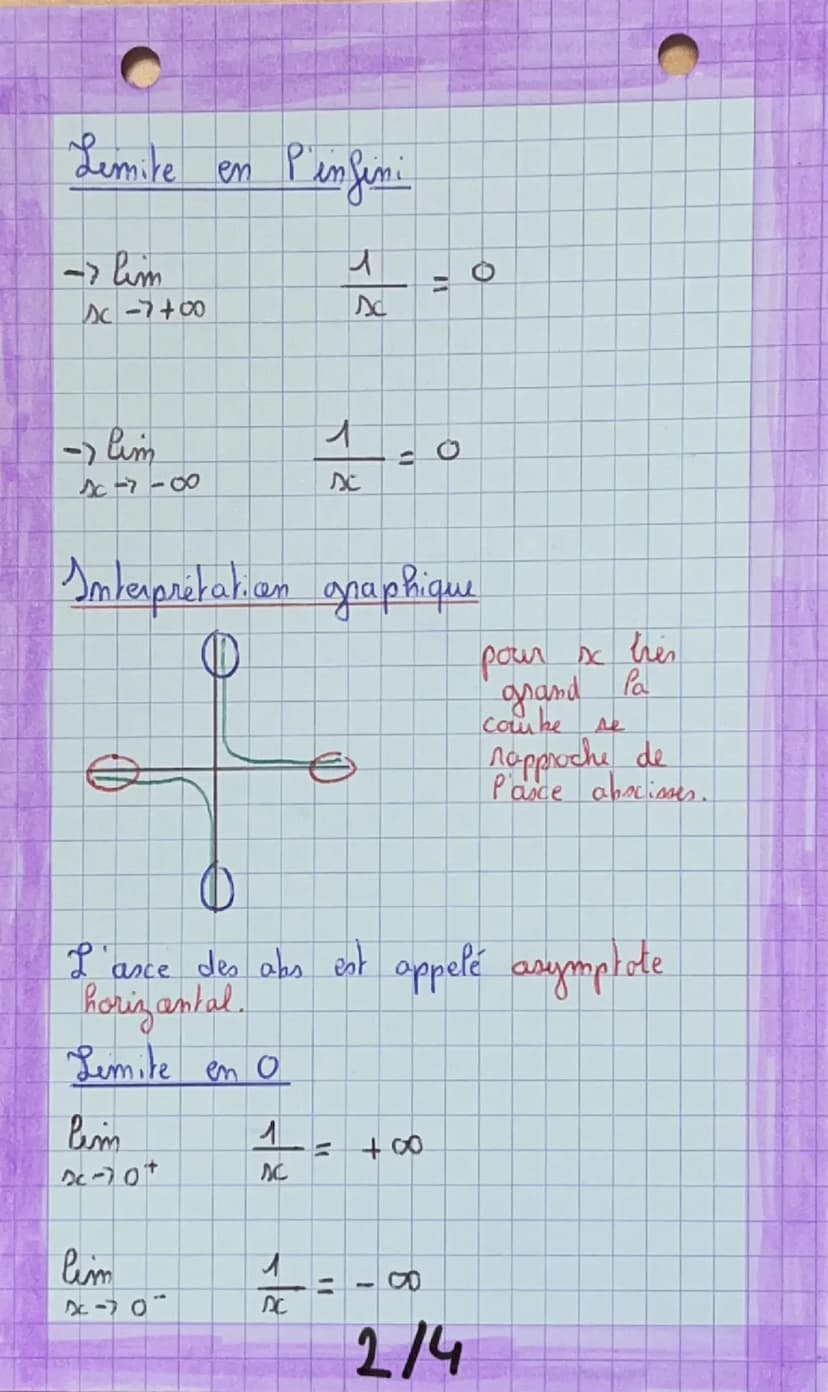 Limite en l'infini
→ lim 1/x = 0
x → +∞
→ lim 1/x = 0
x → -∞
Interprétation graphique
pour x très
grand la
courbe se
rapproche de
l'axe abscisses.
L'axe des abs est appelé asymptote
horizontal.
Limite en 0
lim 1/x = +∞
x → 0⁺
lim 1/x = -∞
x → 0⁻
2/4